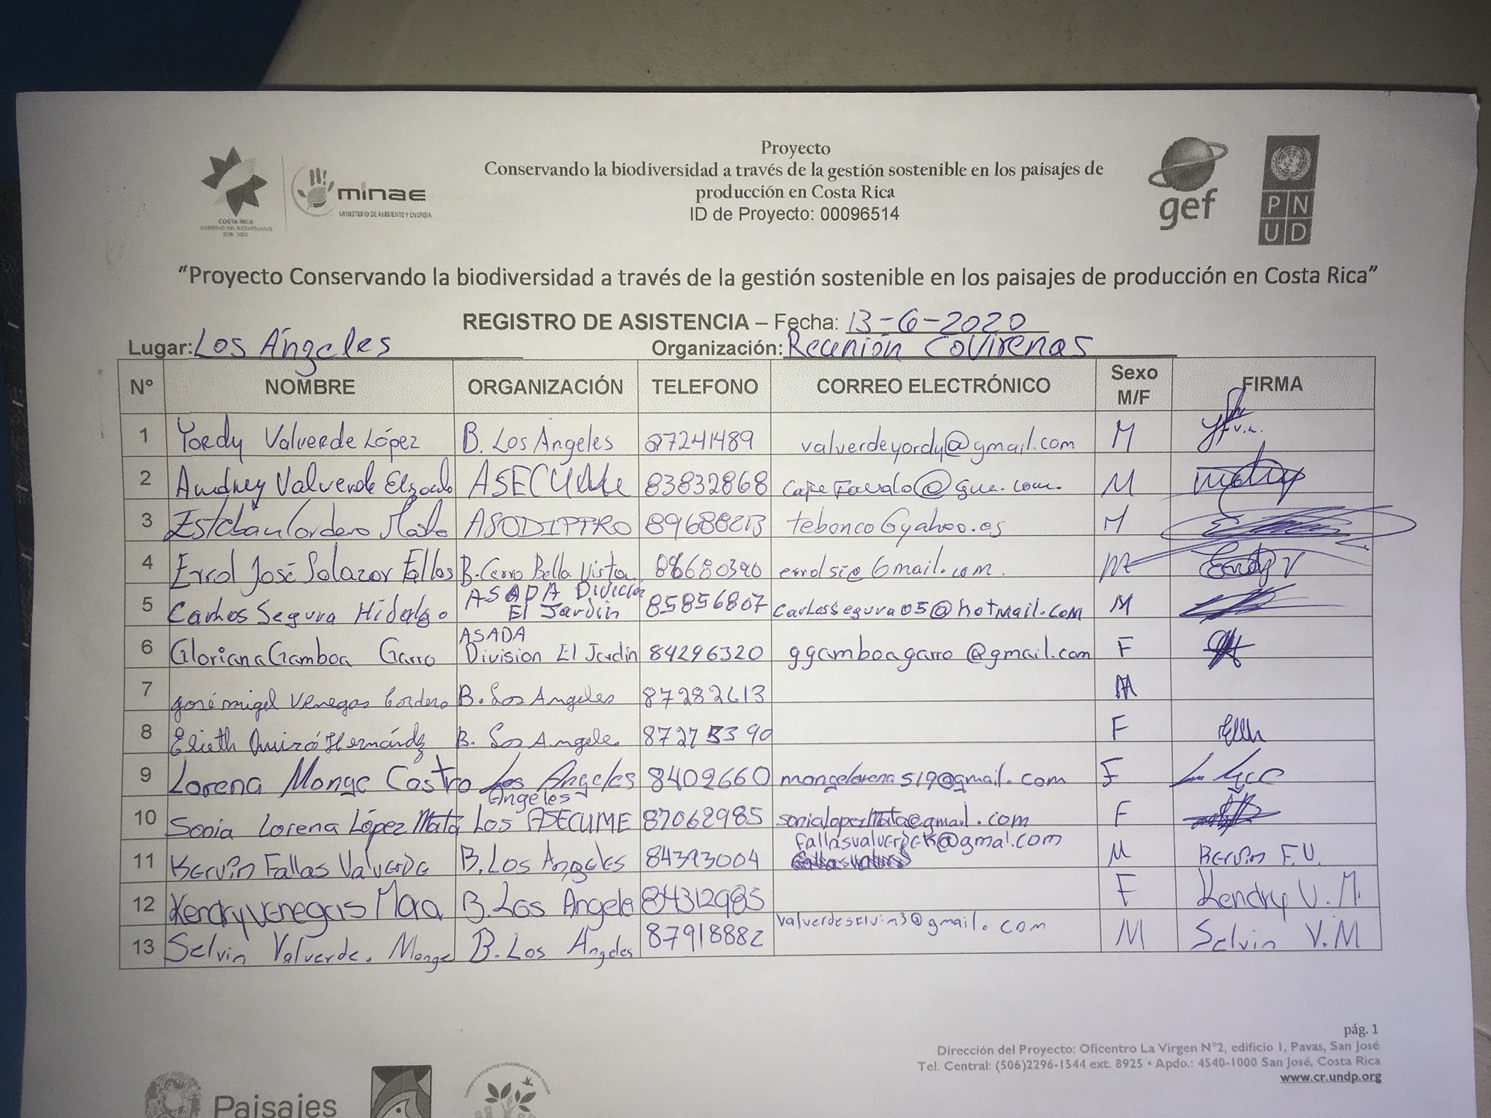 Proyecto
Conservando la biodiversidad a través de la gestión sostenible en los paisajes de
producción en Costa Rica
ID de Proyecto: 00096514
COSTA RICA
GOBIERNO DEL BICENTENARIO
2018 - 2022
minae
MINISTERIO DE AMBIENTE Y ENERGIA
gef
PN
UD
“Proyecto Conservando la biodiversidad a través de la gestión sostenible en los paisajes de producción en Costa Rica”
REGISTRO DE ASISTENCIA – Fecha: 13-6-2020
Lugar: Los Ángeles Organización: Reunión Covirenas
Nº NOMBRE ORGANIZACIÓN TELEFONO CORREO ELECTRÓNICO Sexo M/F FIRMA
1 Yordy Valverde López B. Los Angeles 87241489 valverdeyordy@gmail.com M
2 Audrey Valverde ASECUME 83832868 M
3 Esteban Cordero Mata ASODIPTRO tebonco@yahoo.es M
4 Errol José Salazar Fallas B. Cerro Bella Vista 88680390 errolsi@Gmail.com. M
5 Carlos Segura Hidalgo ASADA División El Jardin 85856807 carlossegura05@hotmail.com M
6 Gloriana Gamboa Garro ASADA Division El Jardin 84296320 ggamboagarro@gmail.com F
7 José migel Venegas Cordero B. Los Angeles 87282613 M
8 Elieth Quiró Hernández B. Los Angeles 87275390 F
9 Lorena Monge Castro Los Angeles 8402660 mongelorena519@gmail.com F
10 Sonia Lorena López Mata Los Angeles ASECUME 87062985 sonialopezMata@gmail.com F
11 Kervin Fallas Valverde B. Los Angeles 84393004 fallasvalverdek@gmal.com M Kervin F.V.
12 Kendry venegas Mora B. Los Angeles 84312985 F Kendry V. M.
13 Selvin Valverde. Monge B. Los Angeles 87918882 valverdeselvin3@gmail.com M Selvin V.M
pág. 1
Dirección del Proyecto: Oficentro La Virgen N°2, edificio 1, Pavas, San José
Tel. Central: (506)2296-1544 ext. 8925 • Apdo.: 4540-1000 San José, Costa Rica
www.cr.undp.org
Paisajes